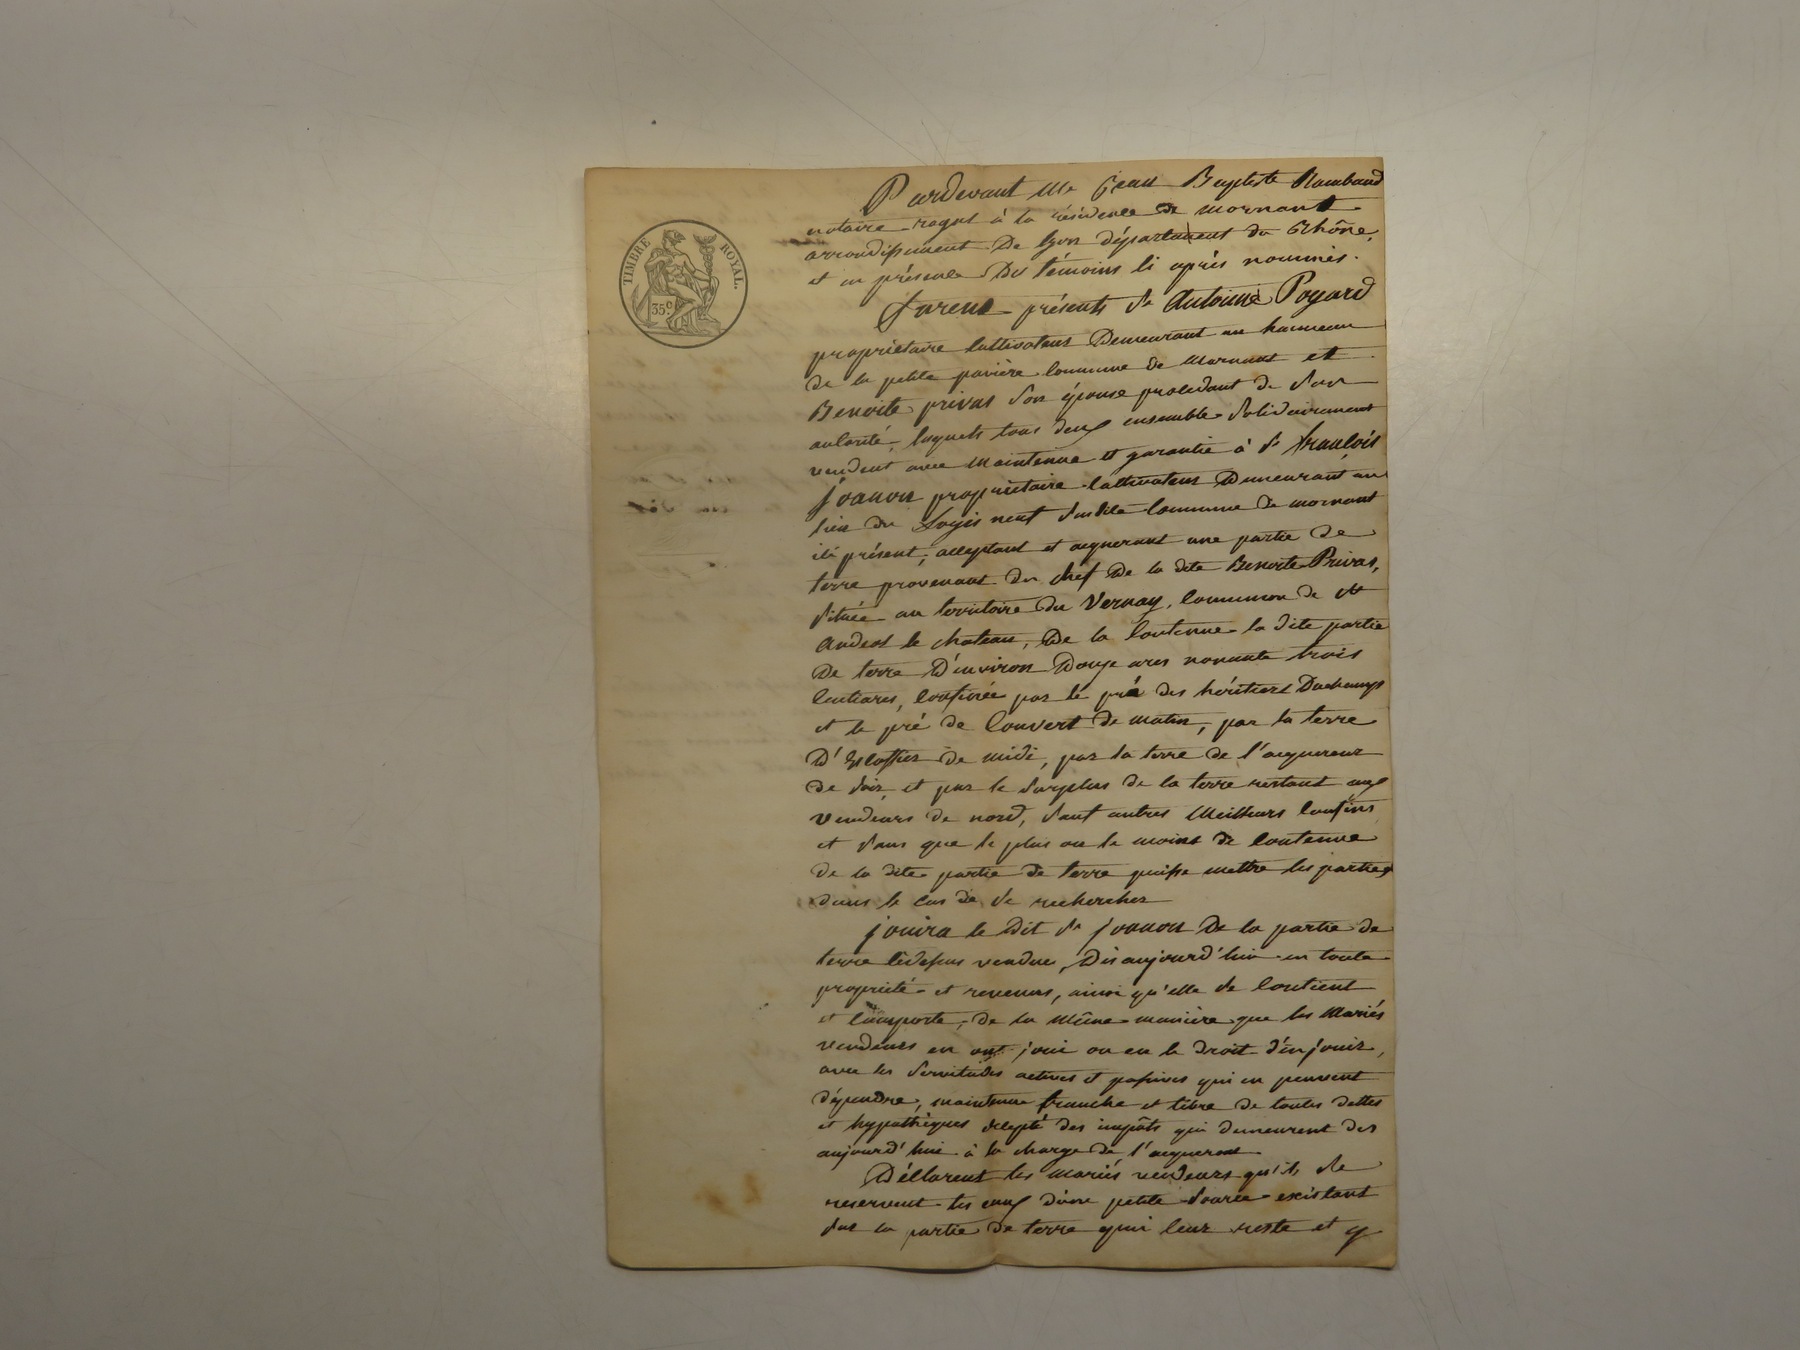 TIMBRE ROYAL.
35c
Pardevant Me Jean Baptiste Rambaud
notaire royal à la résidence de Mornant
arrondissement De lyon département du Rhône,
et en présence Des témoins ci après nommés.
furent présents Sr Antoine Poyard
propriétaire cultivateur Demeurant au hameau
de la petite pavière commune de Mornant et
Benoite privas son épouse procédant de son
autorité, lesquels tous deux ensemble solidairement
vendent avec maintenue et garantie à Sr françois
joanon propriétaire cultivateur Demeurant au
lieu du Logis neuf susdite commune de mornant
ici présent, acceptant et acquerant une partie de
terre provenant du chef De la dite Benoite Privas,
située au territoire du Vernay, commune de St
andeol le chateau, De la contenue la dite partie
De terre D'environ Douze ares nonante trois
centiares, confinée par le pré des héritiers Duchamp
et le pré de Couvert de matin, par la terre
D' de midi, par la terre de l'acquereur
de soir, et par le surplus de la terre restant aux
vendeurs de nord, sauf autres Meilleurs confins
et sans que le plus ou le moins de contenue
de la dite partie de terre puisse mettre les parties
dans le cas de se rechercher
jouira le dit Sr joanon De la partie de
terre cidessus vendue, Dès aujourd'hui en toute
propriété et revenus, ainsi qu'elle se contient
et comporte, de la Même manière que les Mariés
vendeurs en ont joui ou eu le droit d'en jouir,
avec les servitudes actives et passives qui en peuvent
dépendre, maintenue franche et libre de toutes dettes
et hypothèques excepté des impôts qui demeurent dès
aujourd'hui à la charge de l'acquereur
Déclarent les mariés vendeurs qu'ils se
reservent les eaux d'une petite source existant
sur la partie de terre qui leur reste et y